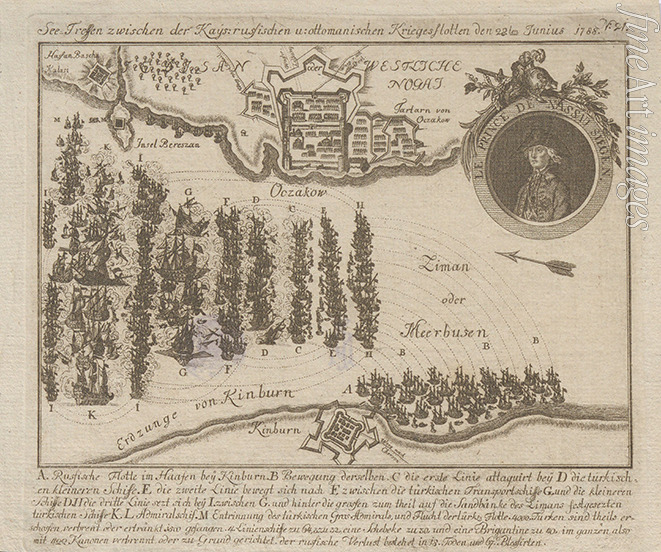 See Treffen zwischen der Kays: rusfischen u: ottomanischen Kriegesflotten den 28ten Junius 1788.
Hassan Bascha
Kalesi
SAN oder WESTLICHE
NOGAI
Tartarn von
Oczakow
Insel Beresan
LE PRINCE DE NASSAU SIEGEN
Oczakow
M M
I K I G F D C E H
Ziman
oder
Meerbusen
B B B B
G F D C E H
A
I K I
Erdzunge von Kinburn
Kinburn
A. Rusfische Flotte im Haafen bey Kinburn. B Bewegung derselben. C die erste Linie attaquirt bey D die türkisch-
en kleineren Schiffe. E. die zweite Linie bewegt sich nach F zwischen die türkischen Transportschiffe G. und die kleineren
Schiffe D. H die dritte Linie sezt sich bey I zwischen G. und hinter die grossen zum theil auf die Sandbänke des Limans festgesezten
türkischen Schiffe K. L Admiralschif. M Entrinnung des türkischen Gros Admirals und Flucht der türk: Flotte. 4000 Türken sind theils er-
schossen verbrent oder ertränkt
gefangen. Linienschiffe zu
eine Schebeke zu 20. und eine Brigantine zu
im ganzen also
mit
Kanonen verbrent oder zu Grund gerichtet. der russische Verlust bestehet in
Toden und 67. Blessirten.
fineArt images